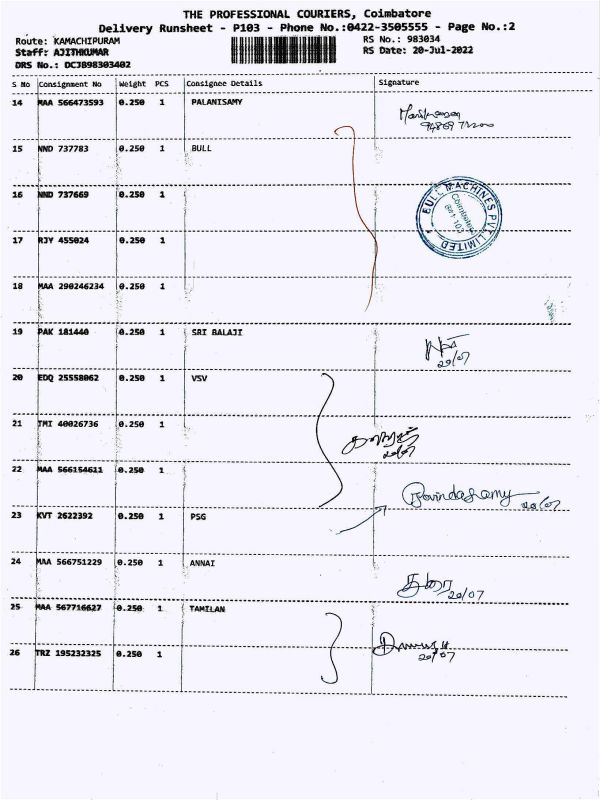 THE PROFESSIONAL COURIERS, Coimbatore
Delivery Runsheet - P103 - Phone No.:0422-3505555 - Page No.:2
Route: KAMACHIPURAM RS No.: 983034
Staff: AJITHKUMAR RS Date: 20-Jul-2022
DRS No.: DCJB98303402
S No Consignment No Weight PCS Consignee Details Signature
14 MAA 566473593 0.250 1 PALANISAMY
15 NND 737783 0.250 1 BULL
16 NND 737669 0.250 1
BULL MACHINES PVT LIMITED
Coimbatore
641 103
17 RJY 455024 0.250 1
18 MAA 290246234 0.250 1
19 PAK 181440 0.250 1 SRI BALAJI
20/07
20 EDQ 25558062 0.250 1 VSV
21 TMI 40026736 0.250 1
20/07
22 MAA 566154611 0.250 1
Govindasamy 20/07
23 KVT 2622392 0.250 1 PSG
24 MAA 566751229 0.250 1 ANNAI
20/07
25 MAA 567716627 0.250 1 TAMILAN
20/07
26 TRZ 195232325 0.250 1